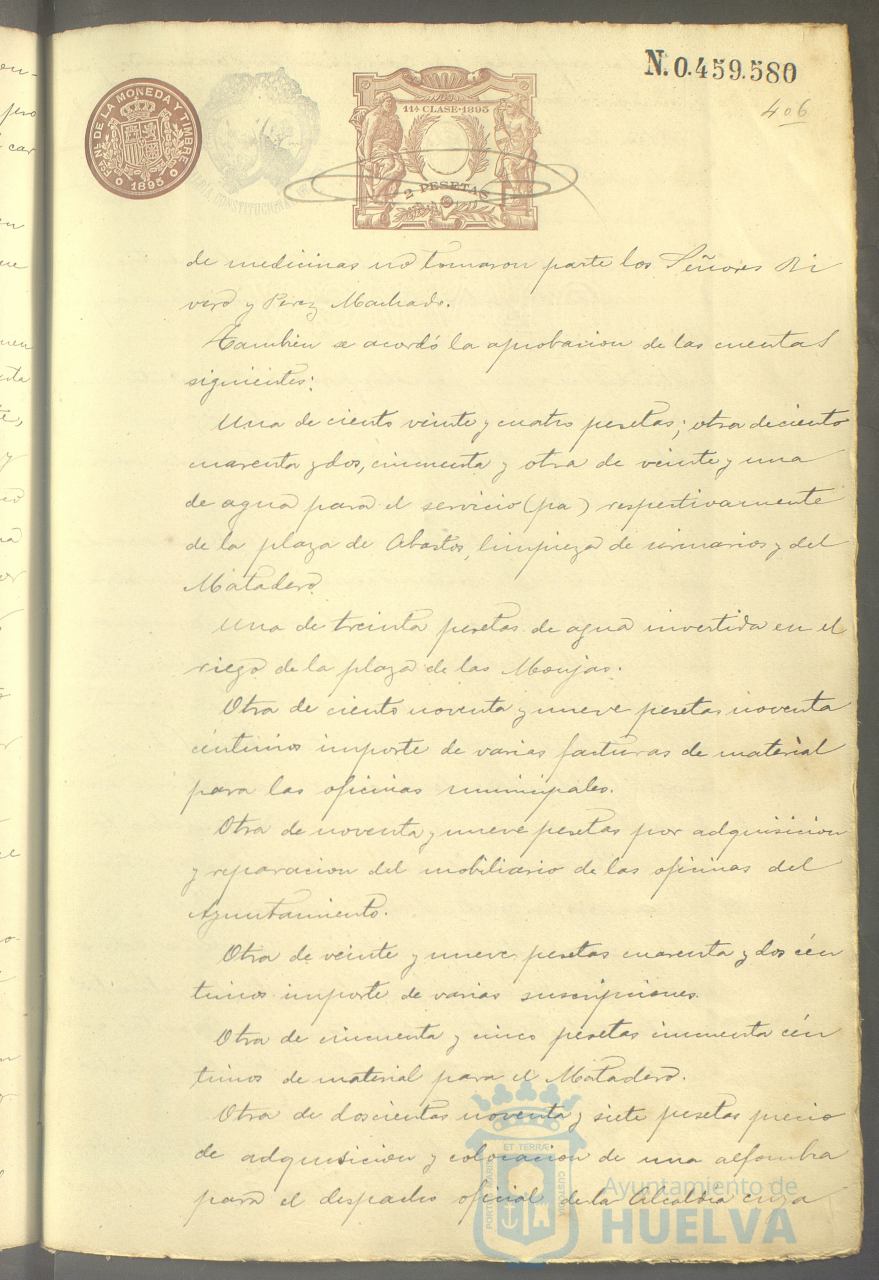 N. 0.459.580
406
FCA NL DE LA MONEDA Y TIMBRE
1895
CONSTITUCIONAL
11ª CLASE·1895
2 PESETAS
de medicinas no tomaron parte los Señores Ri
vero y Perez Machado.
Tambien se acordó la aprobacion de las cuentas
siguientes:
Una de ciento veinte y cuatro pesetas; otra de ciento
cuarenta y dos, cincuenta y otra de veinte y una
de agua para el servicio (pa) respectivamente
de la plaza de Abastos, limpieza de urinarios y del
Matadero.
Una de treinta pesetas de agua invertida en el
riego de la plaza de las Monjas.
Otra de ciento noventa y nueve pesetas noventa
céntimos importe de varias facturas de material
para las oficinas municipales.
Otra de noventa y nueve pesetas por adquisicion
y reparacion del mobiliario de las oficinas del
Ayuntamiento.
Otra de veinte y nueve pesetas cuarenta y dos cén
timos importe de varias suscripciones.
Otra de cincuenta y cinco pesetas cincuenta cén
timos de material para el Matadero.
Otra de doscientas noventa y siete pesetas precio
de adquisicion y colocacion de una alfombra
para el despacho oficial de la Alcaldia cuya
PORTUS MARIS ET TERRÆ CUSTODIA
Ayuntamiento de
HUELVA